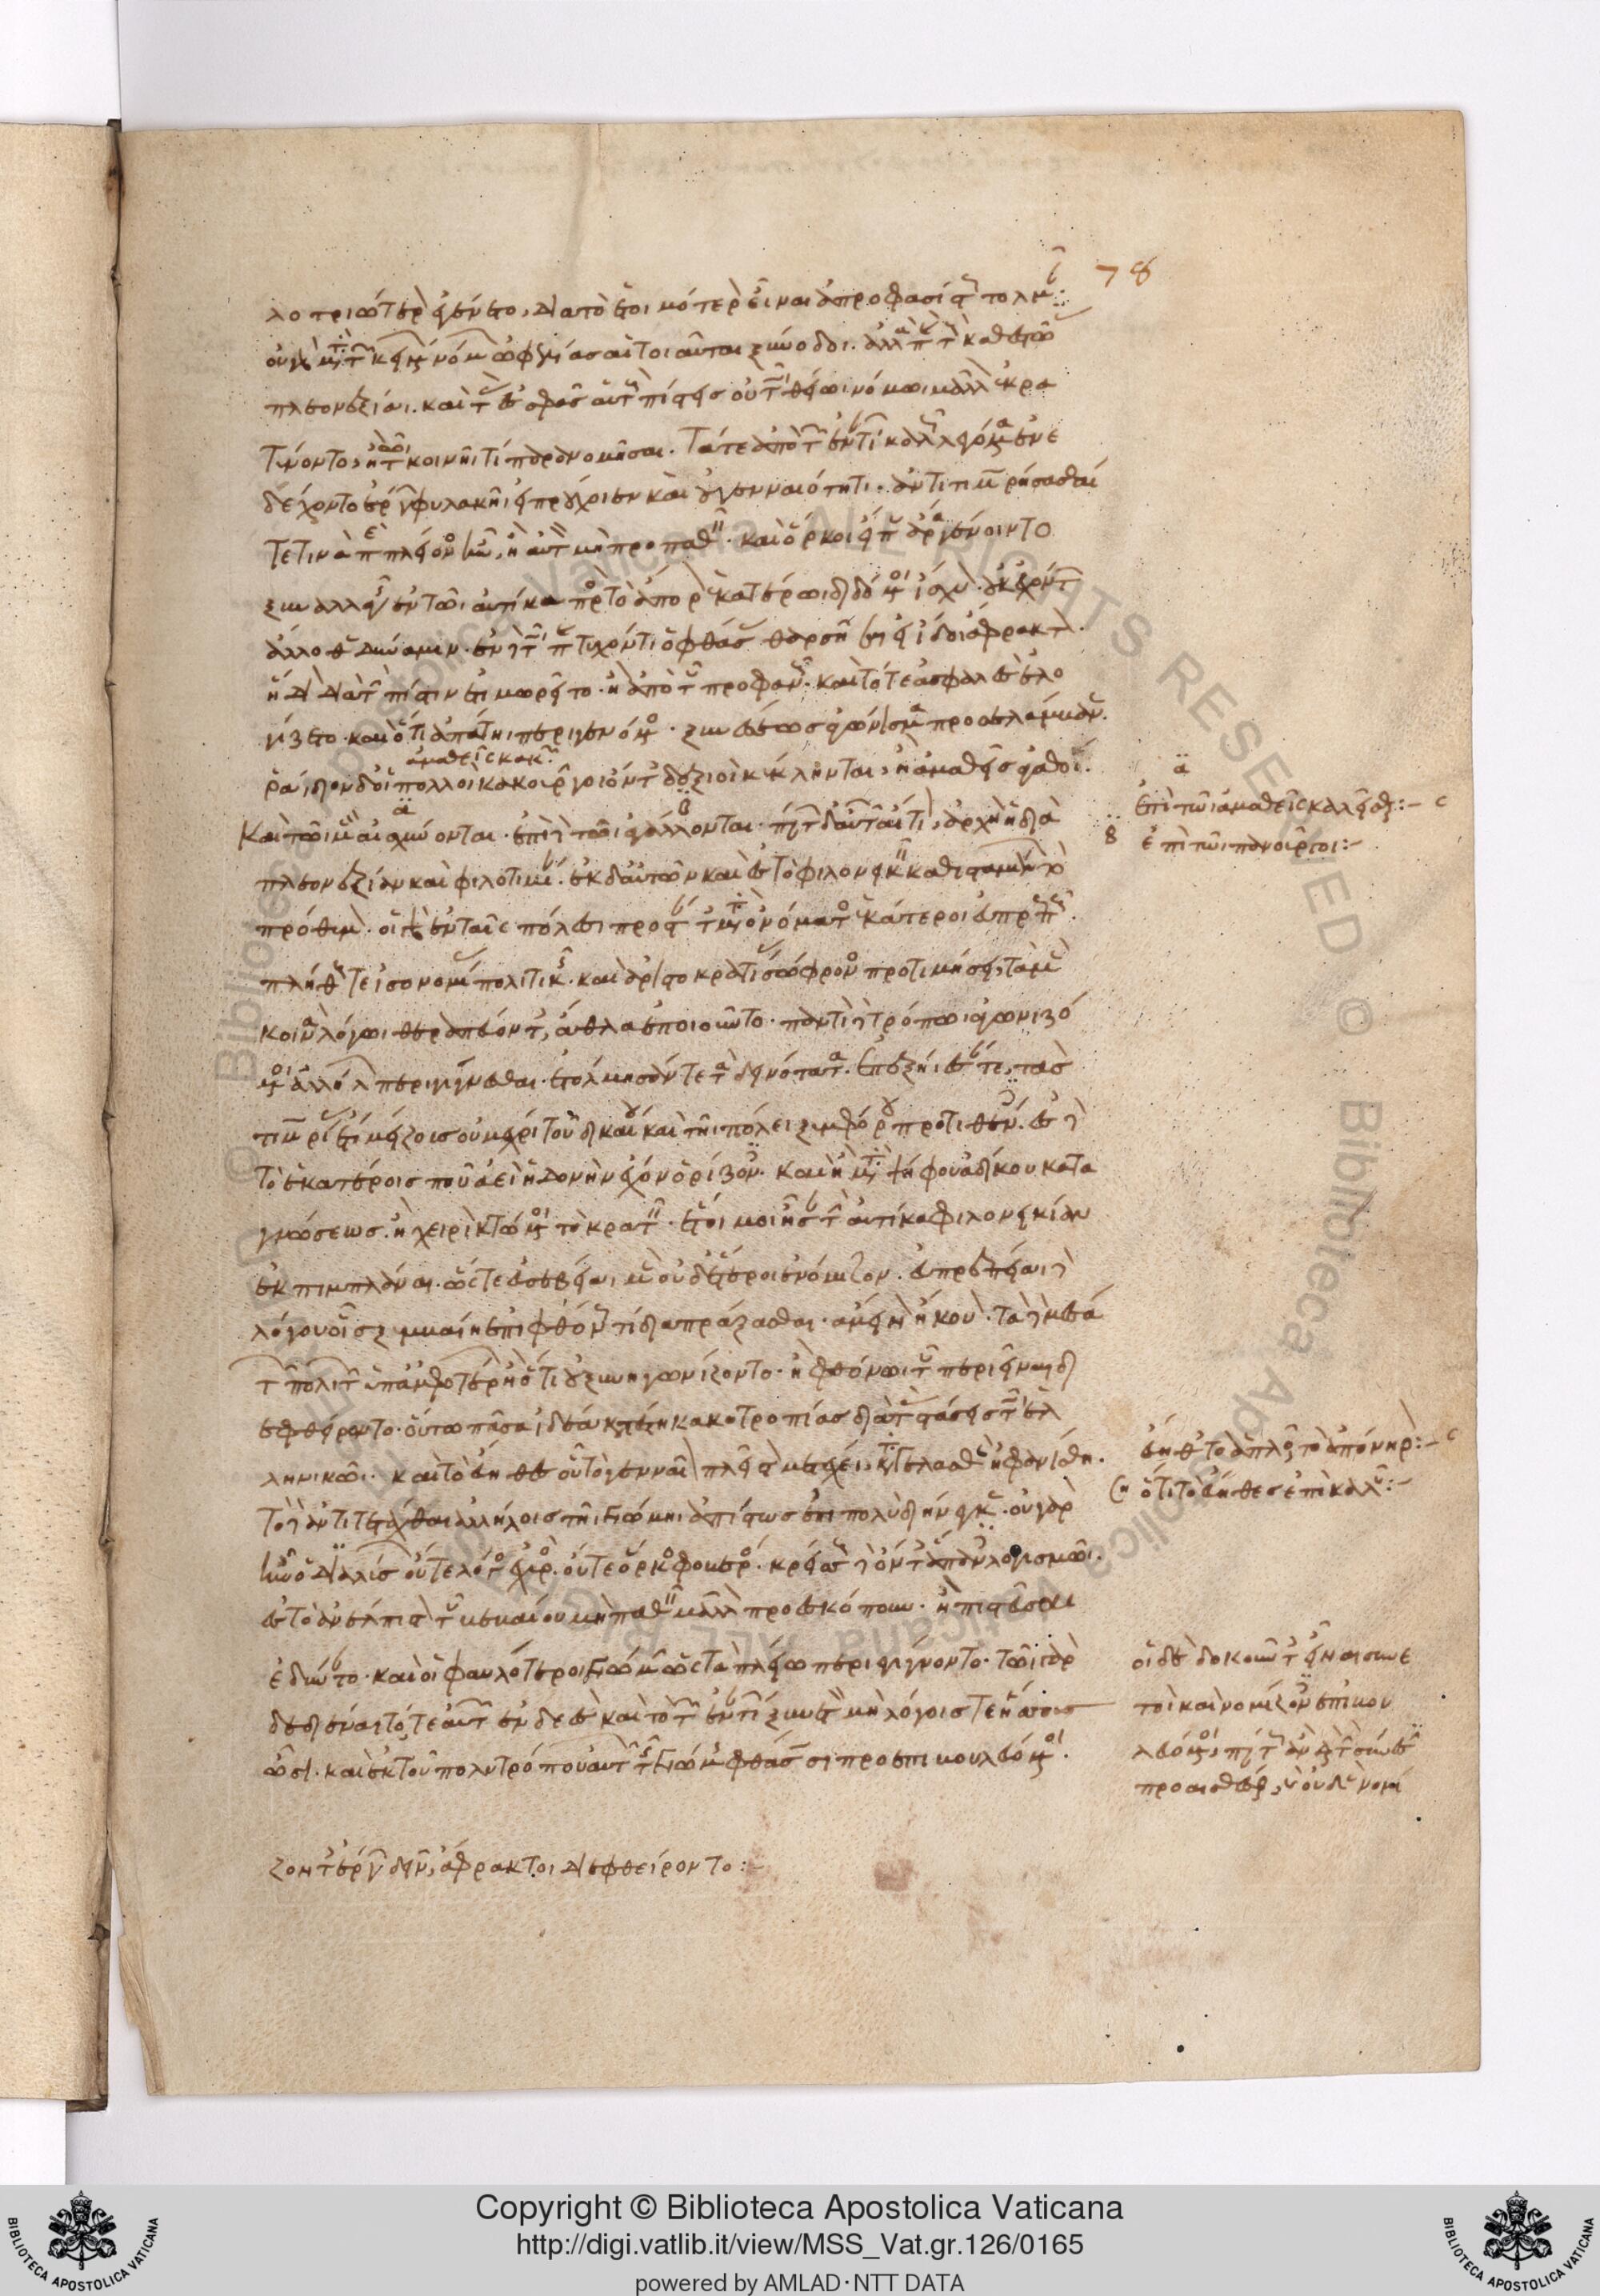 λοτριώτερον ἐγένετο, διὰ τὸ ἑτοιμότερον εἶναι ἀπροφασίστως τολμᾶν·
οὐ γὰρ μετὰ τῶν κειμένων νόμων ὠφελίας αἱ τοιαῦται ξύνοδοι. ἀλλὰ παρὰ τοὺς καθεστῶτας
πλεονεξίαι. καὶ τὰς ἐς σφᾶς αὐτοὺς πίστεις οὐ τῶι θείωι νόμωι μᾶλλον ἐκρα
τύνοντο, ἢ τῶι κοινῆι τὶ παρανομῆσαι. Τά τε ἀπὸ τῶν ἐναντίων καλῶς λεγόμενα ἐνε
δέχοντο ἔργων φυλακῆι εἰ προύχοιεν καὶ οὐ γενναιότητι. ἀντιτιμωρήσασθαί
τέ τινα περὶ πλείονος ἦν, ἢ αὐτὸν μὴ προπαθεῖν. καὶ ὅρκοι εἴ που ἄρα γένοιντο
ξυναλλαγῆς ἐν τῶι αὐτίκα πρὸς τὸ ἄπορον ἑκατέρωι διδόμενοι ἴσχυον οὐκ ἐχόντων
ἄλλοθεν δύναμιν. ἐν δὲ τῶι παρατυχόντι ὁ φθάσας θαρσῆσαι εἰ ἴδοι ἄφρακτον.
ἥδιον διὰ τὴν πίστιν ἐτιμωρεῖτο ἢ ἀπὸ τοῦ προφανοῦς. καὶ τό τε ἀσφαλὲς ἐλο
γίζετο καὶ ὅτι ἀπάτηι περιγενόμενος ξυνέσεως ἀγώνισμα προσελάμβανεν.
ἀμαθεῖς κακῶν
ῥᾴιον δ' οἱ πολλοὶ κακοῦργοι ὄντες δεξιοὶ κέκληνται, ἢ ἀμαθεῖς ἀγαθοί.
Καὶ τῶι μὲν αἰσχύνονται. ἐπὶ δὲ τῶι ἀγάλλονται. πάντων δ' αὐτῶν αἴτιον, ἀρχὴ ἡ διὰ
πλεονεξίαν καὶ φιλοτιμίαν. ἐκ δ' αὐτῶν καὶ ἐς τὸ φιλονεικεῖν καθισταμένων τὸ
πρόθυμον. οἱ γὰρ ἐν ταῖς πόλεσι προστάντες μετὰ ὀνόματος ἑκάτεροι εὐπρεποῦς.
πλήθους τε ἰσονομίας πολιτικῆς. καὶ ἀριστοκρατίας σώφρονος προτιμήσει, τὰ μὲν
κοινὰ λόγωι θεραπεύοντες, ἆθλα ἐποιοῦντο. παντὶ δὲ τρόπωι ἀγωνιζό
μενοι ἀλλήλων περιγίγνεσθαι. ἐτόλμησάν τε τὰ δεινότατα. ἐπεξῄεσάν τε, τὰς
τιμωρίας ἔτι μείζους οὐ μέχρι τοῦ δικαίου καὶ τῆι πόλει ξυμφόρου προτιθέντες. ἐς δὲ
τὸ ἑκατέροις που ἀεὶ ἡδονὴν ἔχον ὁρίζοντες. καὶ ἢ μετὰ ψήφου ἀδίκου κατα
γνώσεως. ἢ χειρὶ κτώμενοι τὸ κρατεῖν. ἑτοῖμοι ἦσαν τὴν αὐτίκα φιλονεικίαν
ἐκπιμπλάναι. ὥστε εὐσεβείαι μὲν οὐδέτεροι ἐνόμιζον. εὐπρεπείαι δὲ
λόγου οἷς ξυμβαίη ἐπιφθόνως τὶ διαπράξασθαι. ἄμεινον ἤκουον. τὰ δὲ μέσα
τῶν πολιτῶν ὑπ' ἀμφοτέρων ἢ ὅτι οὐ ξυνηγωνίζοντο. ἢ φθόνωι τοῦ περιεῖναι δι
εφθείροντο. οὕτω πᾶσα ἰδέα κατέστη κακοτροπίας διὰ τὰς στάσεις τῶι ἑλ
ληνικῶι. καὶ τὸ εὔηθες οὗ τὸ γενναῖον πλεῖστον μετέχει, καταγελασθὲν ἠφανίσθη.
τὸ δὲ ἀντιτετάχθαι ἀλλήλοις τῆι γνώμηι ἀπίστως ἐπὶ πολὺ διήνεγκεν. οὐ γὰρ
ἦν ὁ διαλύσων οὔτε λόγος ἐχυρός. οὔτε ὅρκος φοβερός. κρείσσους δὲ ὄντες ἅπαντες λογισμῶι.
ἐς τὸ ἀνέλπιστον τοῦ βεβαίου μὴ παθεῖν μᾶλλον προεσκόπουν. ἢ πιστεῦσαι
ἐδύναντο. καὶ οἱ φαυλότεροι γνώμην ὡς τὰ πλείω περιεγίγνοντο. τῶι γὰρ
δεδιέναι τό τε αὐτῶν ἐνδεὲς καὶ τὸ τῶν ἐναντίων ξυνετὸν μὴ λόγοις τε ἥσσους
ὦσι. καὶ ἐκ τοῦ πολυτρόπου αὐτῶν τῆς γνώμης φθάσωσι προεπιβουλευόμενοι.
ζοντες ἔργωι δεινὸν, ἄφρακτοι διεφθείροντο:-
78
α
ἐπὶ τῶι ἀμαθεῖς καλεῖσθαι:-
β ἐπὶ τῶι πανοῦργοι:-
εὔηθες τὸ ἁπλοῦν τὸ ἀπόνηρον:-
ὅτι τὸ εὔηθες ἐπὶ καλοῦ:-
Copyright © Biblioteca Apostolica Vaticana
http://digi.vatlib.it/view/MSS_Vat.gr.126/0165
powered by AMLAD·NTT DATA